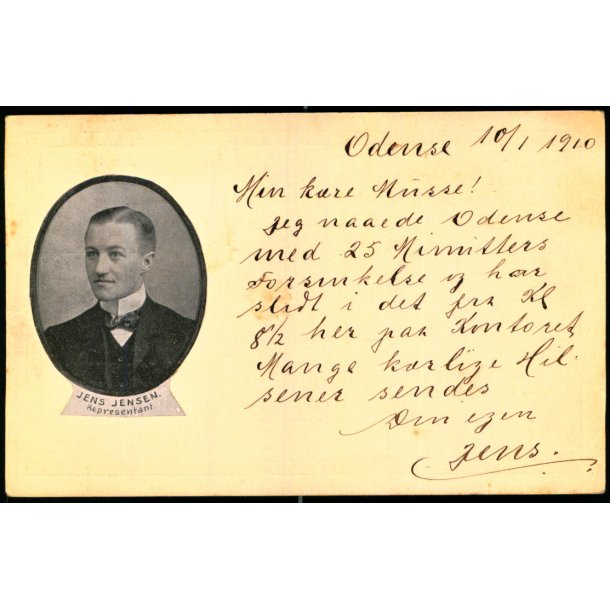 Odense 10/1 1910
Min kære Musse!
Jeg naaede Odense
med 25 Minutters
Forsinkelse og har
slidt i det fra Kl
8½ her paa Kontoret,
Mange kærlige Hil-
sener sendes
Din egen
Jens.
JENS JENSEN.
Representant.